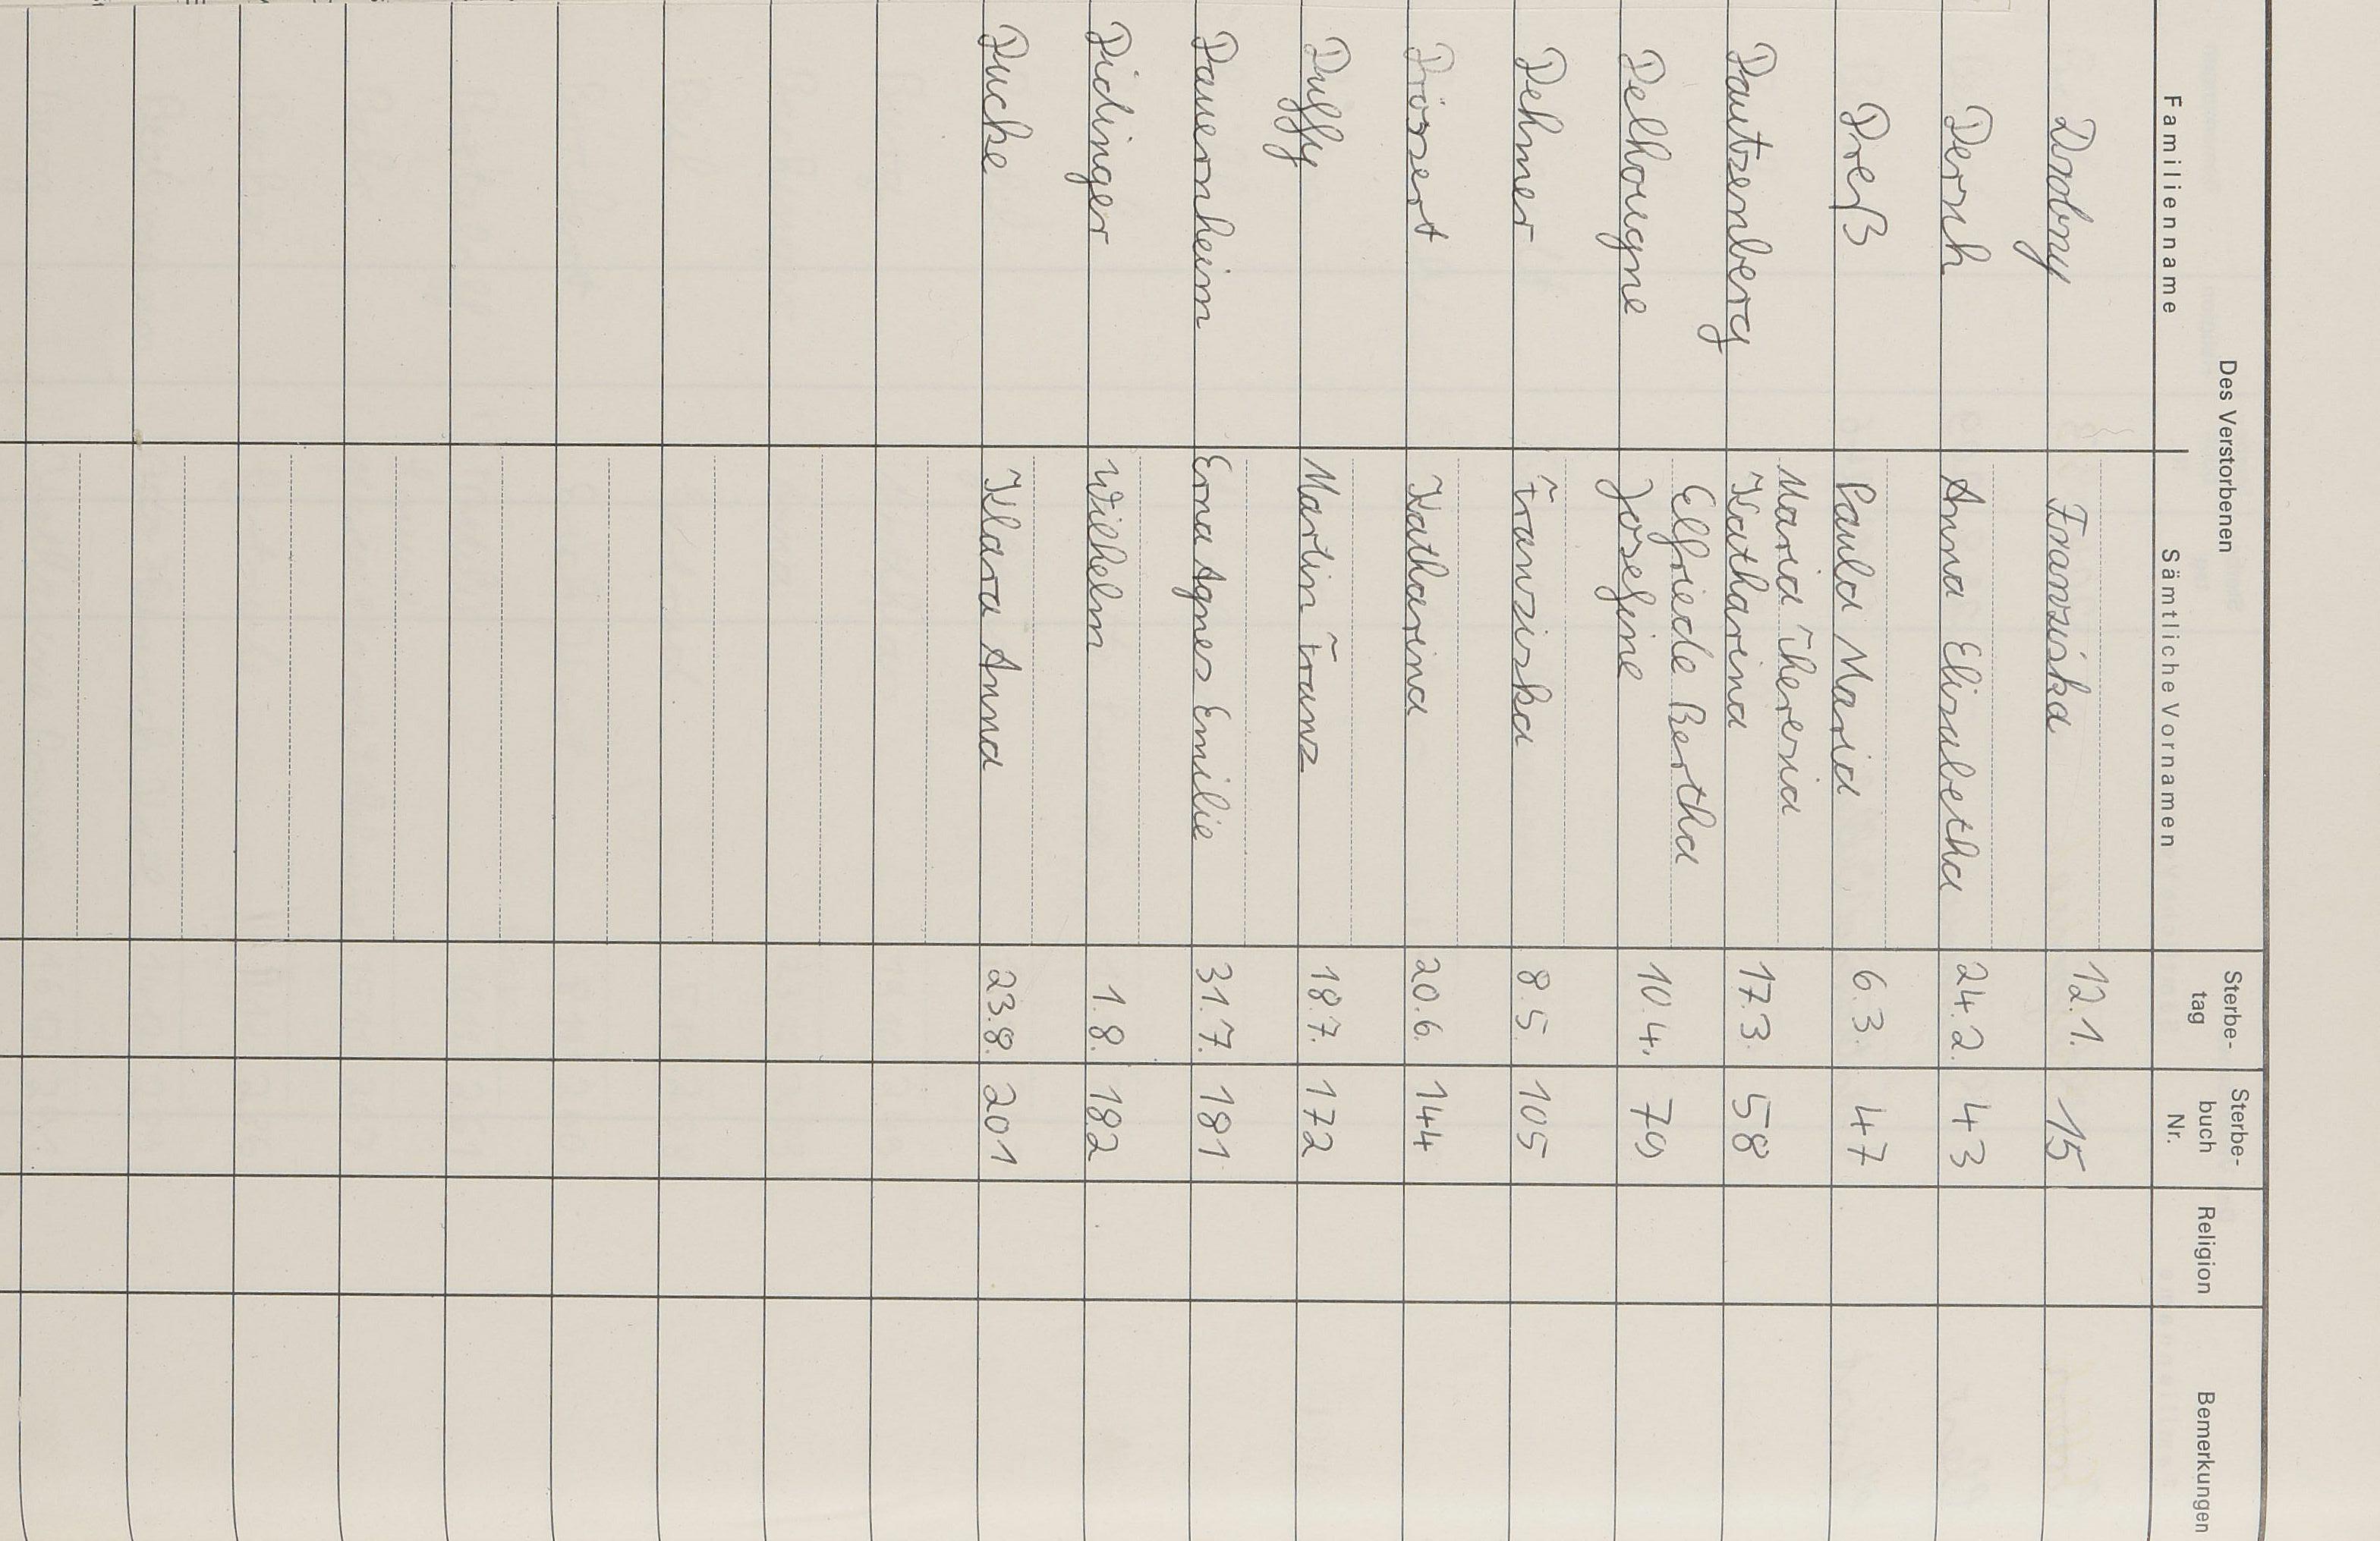 Des Verstorbenen
Familienname Sämtliche Vornamen Sterbe-tag Sterbe-buch Nr. Religion Bemerkungen
Drobny Franziska 12.1. 15
Dersch Anna Elisabetha 24.2. 43
Dreß Paula Maria 6.3. 47
Maria Theresia
Dautzenberg Katharina 17.3. 58
Elfriede Bertha
Delhougne Josefine 10.4. 79
Dehmer Franziska 8.5. 105
Dössert Katharina 20.6. 144
Duffy Martin Franz 18.7. 172
Dauernheim Erna Agnes Emilie 31.7. 181
Didinger Wilhelm 1.8. 182
Ducke Klara Anna 23.8. 201